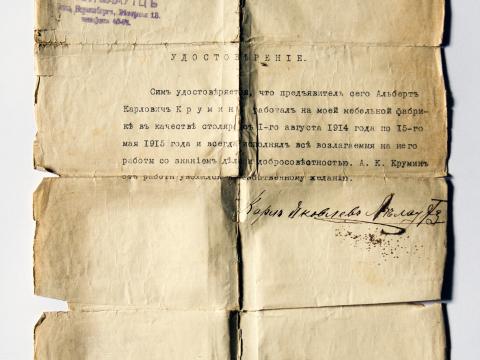 УДОСТОВѢРЕНІЕ.
Симъ удостовѣряется, что предъявитель сего Альбертъ
Карловичъ Круминъ работалъ на моей мебельной фабри-
кѣ въ качествѣ столяра съ 1-го августа 1914 года по 15-го
мая 1915 года и всегда исполнялъ всѣ возлагаемыя на него
работы со знаніемъ дѣла и добросовѣстностью. А. К. Круминъ
отъ работы уволился по собственному желанію.
Карлъ Яковлевъ